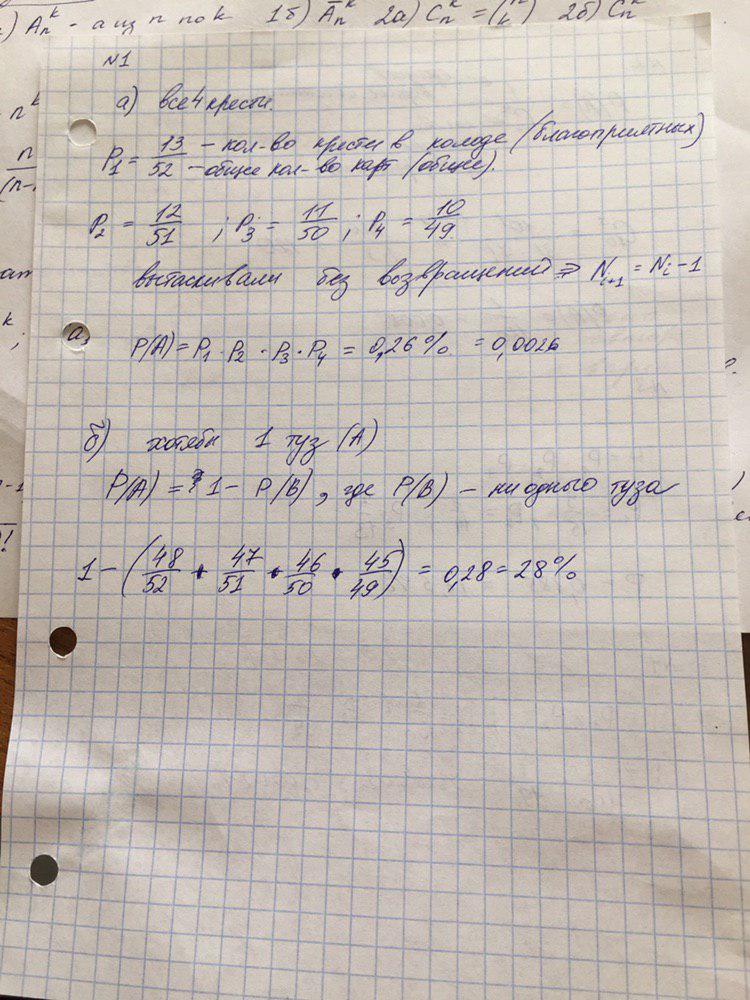 ) Aₙᵏ - а из n по k 1б) Āₙᵏ 2а) Cₙᵏ = (ⁿₖ) 2б) Cₙᵏ
N1
а) все 4 крести.
P₁ = 13/52 - кол-во крести в колоде (благоприятных) - общее кол-во карт (общее).
P₂ = 12/51 ; P₃ = 11/50 ; P₄ = 10/49
вытаскивали без возвращений ⇒ Nᵢ₊₁ = Nᵢ - 1
P(A) = P₁ · P₂ · P₃ · P₄ = 0,26% = 0,0026
б) хотябы 1 туз (A)
P(A) = 1 - P(B), где P(B) - ни одного туза
1 - (48/52 · 47/51 · 46/50 · 45/49) = 0,28 = 28%